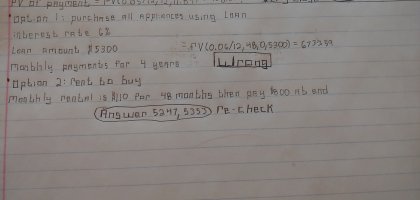 PV of payment = PV(0.05/12,
• Option 1: purchase all appliances using Loan
interest rate 6%
Loan Amount $5300 = FV(0.06/12,48,0,5300) = 6733.59
monthly payments for 4 years Wrong
• Option 2: rent to buy
monthly rental is $110 for 48 months then pay $800 at end
Answer 5247,5353 re-check